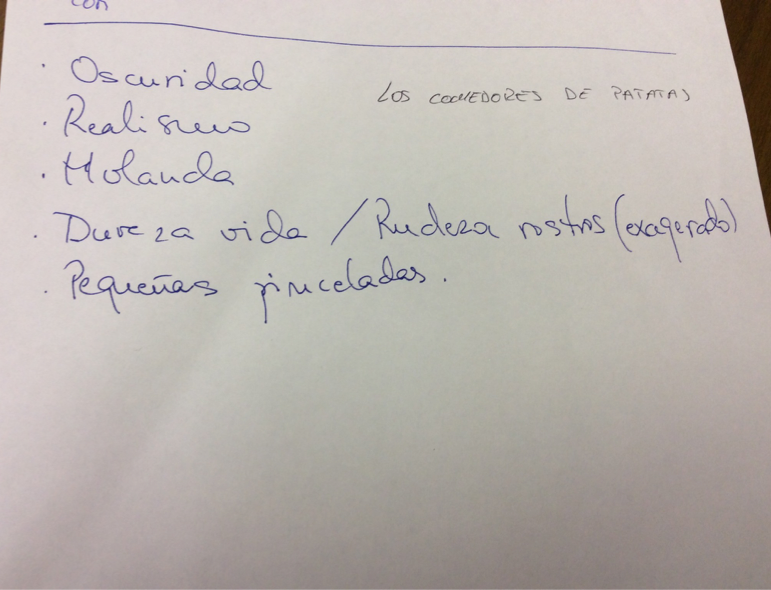 con
· Oscuridad
LOS COMEDORES DE PATATAS
· Realismo
· Holanda
· Dureza vida / Rudeza rostros (exagerado)
· Pequeñas pinceladas.